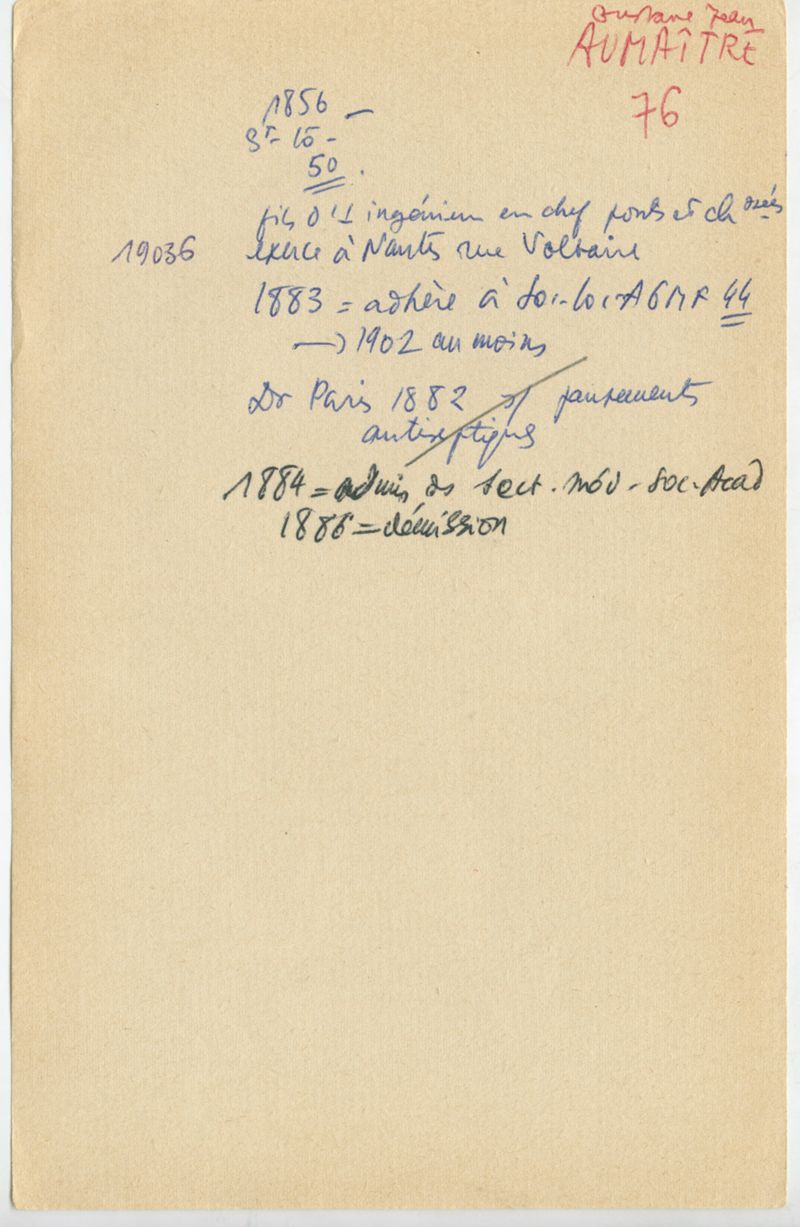 Gustave Jean
AUMAÎTRE
76
1856 –
St- Lô -
50
fils d'1 ingénieur en chef ponts et chssées
19036 exerce à Nantes rue Voltaire
1883 = adhère à Soc-loc-AGMF 44
→ 1902 au moins
Dr Paris 1882 s/ pansements
antiseptiques
1884 = admis ds Sect. méd - Soc. Acad
1886 = démission